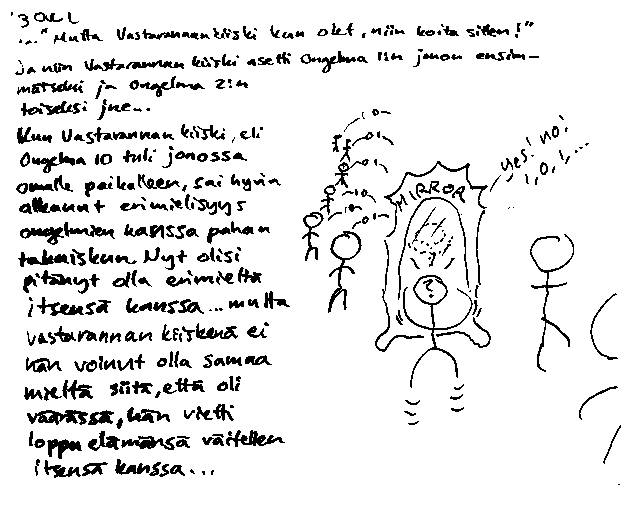 ..."Mutta Vastarannankiiski kun olet, niin koita sitten!"
ja niin Vastarannan kiiski asetti Ongelma 1:n jonon ensim-
mäiseksi ja Ongelma 2:n
toiseksi jne...
Kun Vastarannan kiiski, eli
Ongelma 10 tuli jonossa
omalle paikalleen, sai hyvin
alkanut erimielisyys
ongelmien kanssa pahan
takaiskun. Nyt olisi
pitänyt olla erimieltä
itsensä kanssa... mutta
vastarannan kiiskenä ei
hän voinut olla samaa
mieltä siitä, että oli
väärässä, hän vietti
loppuelämänsä väitellen
itsensä kanssa...
-0-
-01-
-01-
-10-
-10-
-01-
MIRROR
?
yes! no!
1,0,1,...